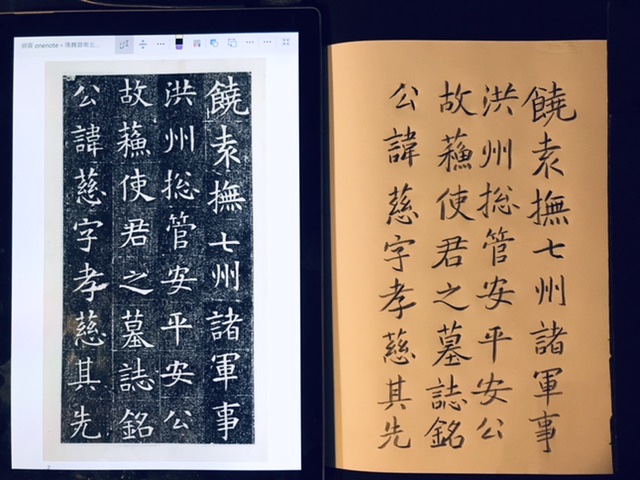 onenote
饒袁撫七州諸軍事
洪州捴管安平安公
故蘓使君之墓誌銘
公諱慈字孝慈其先
饒袁撫七州諸軍事
洪州捴管安平安公
故蘓使君之墓誌銘
公諱慈字孝慈其先